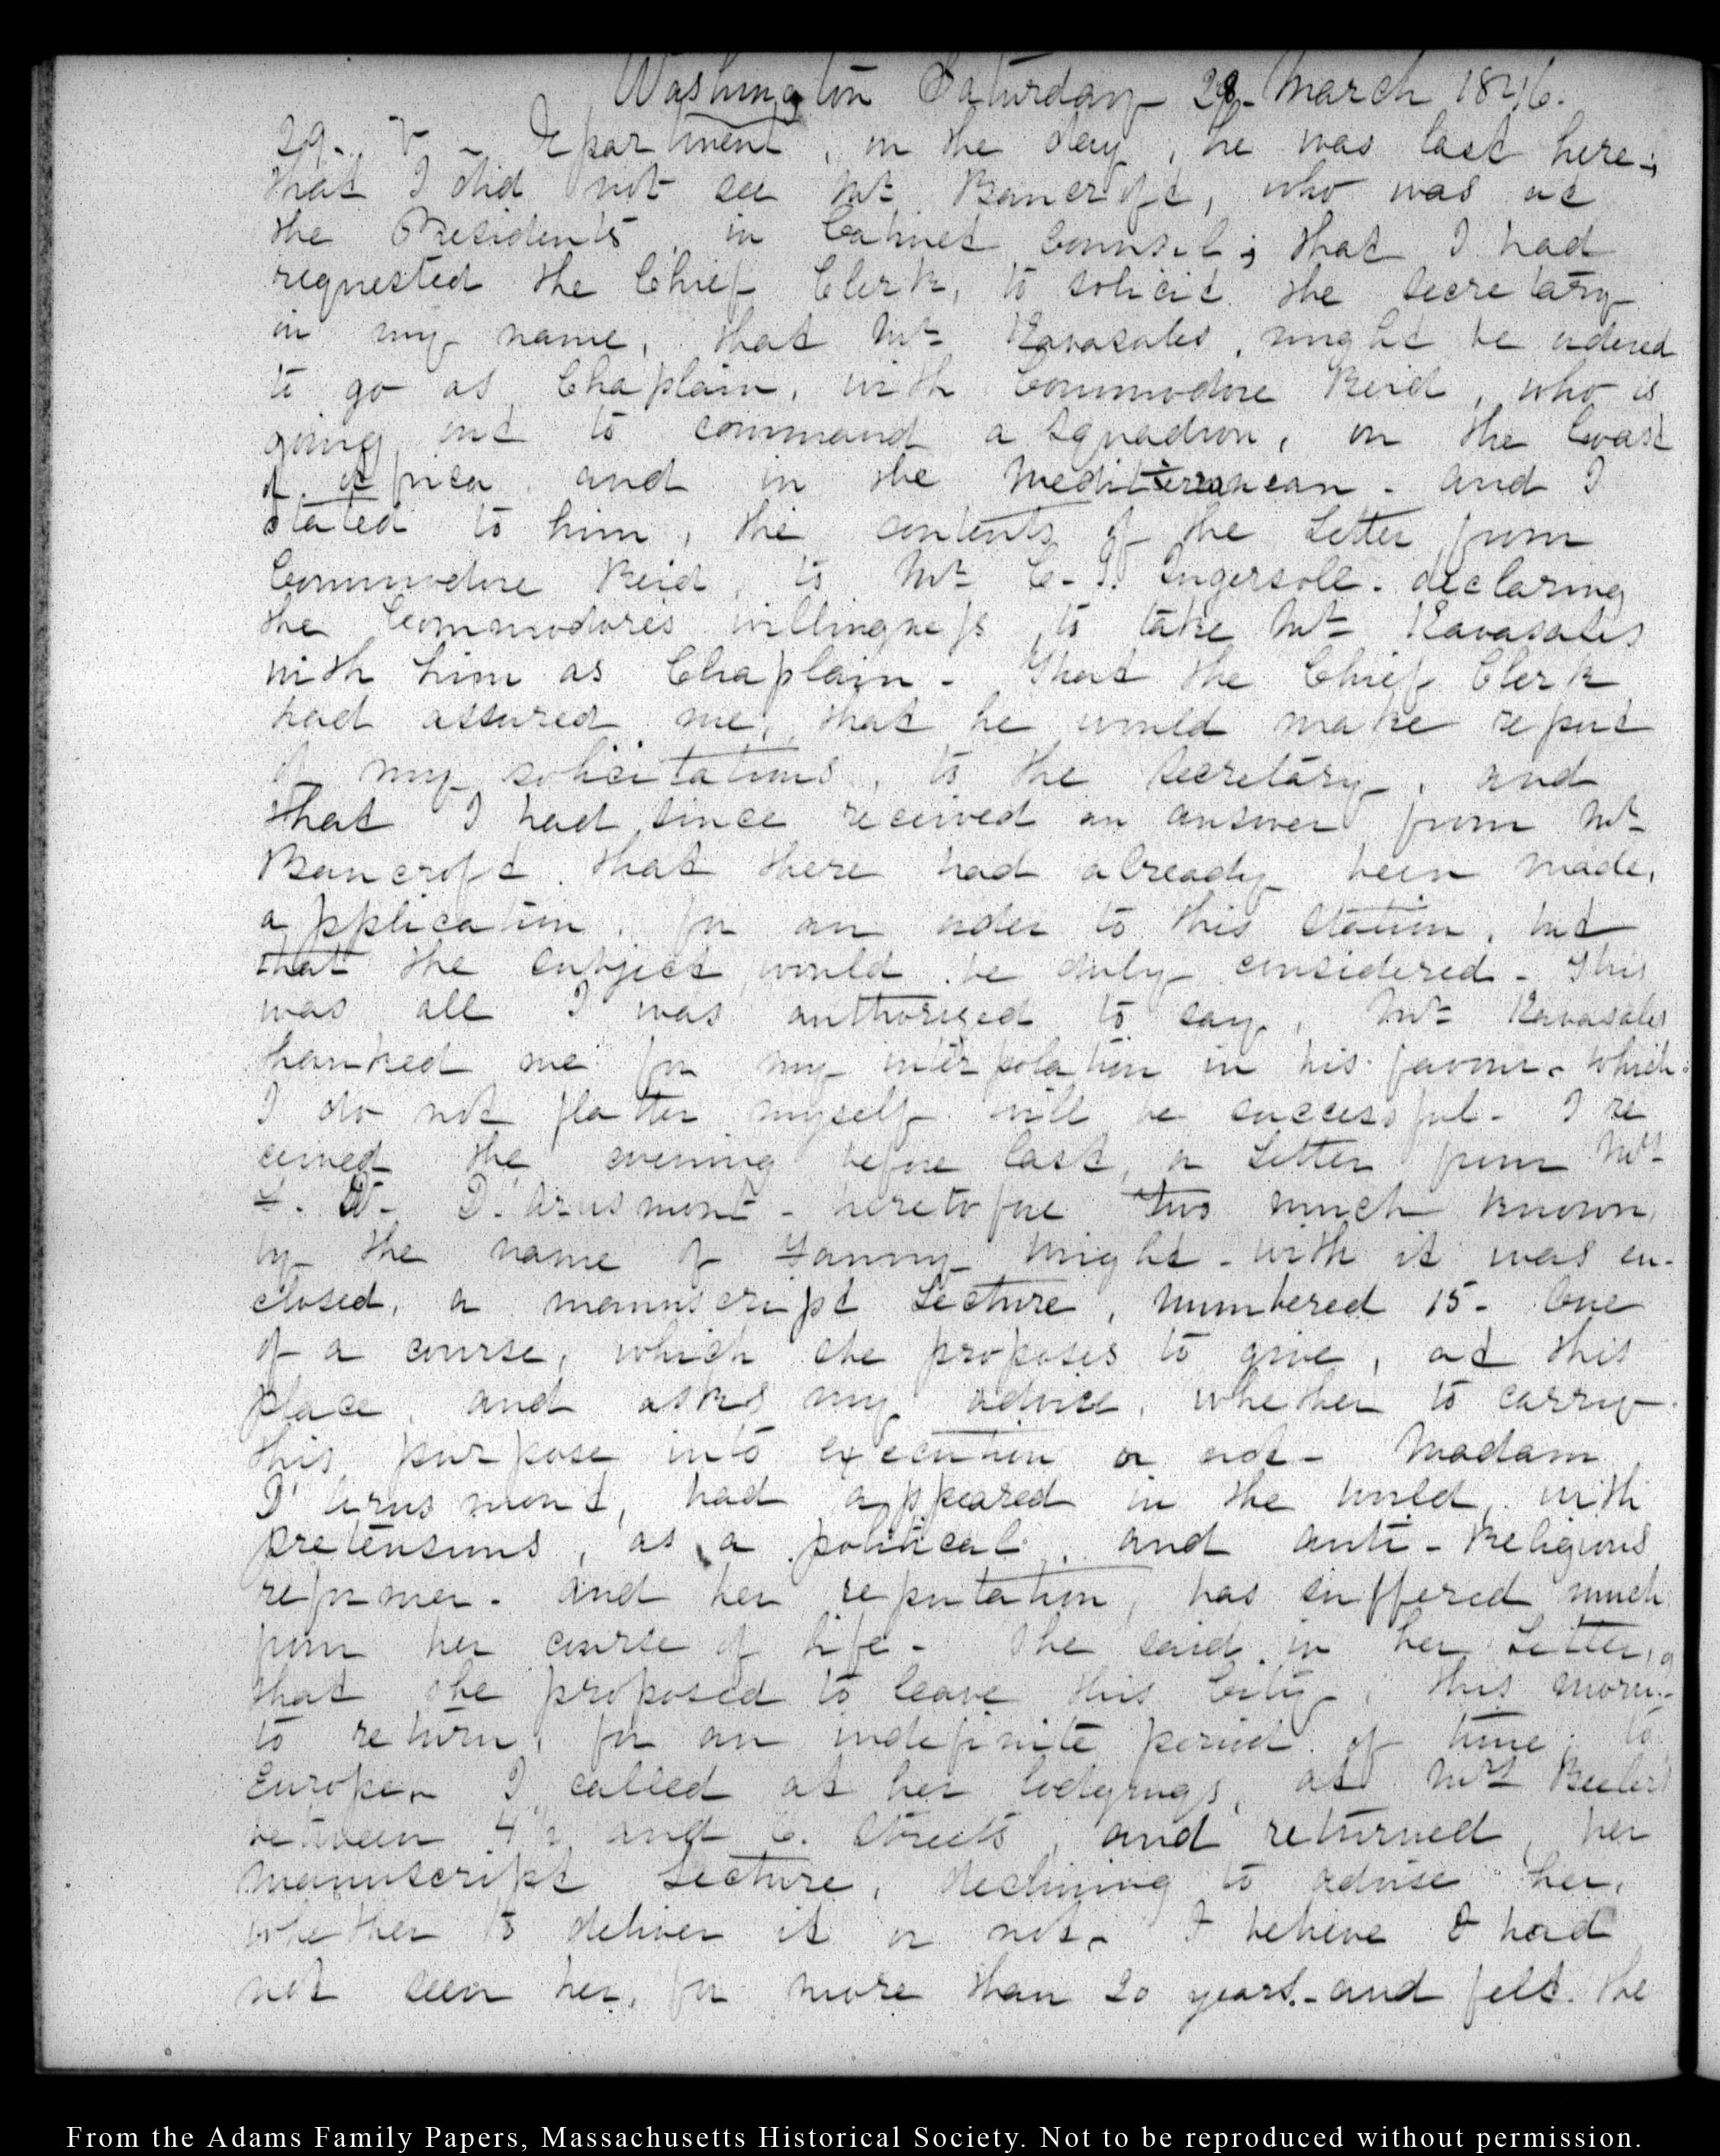 Washington Saturday 28. March 1846.
29. V. Department, on the day, he was last here;
that I did not see Mr. Bancroft, who was at
the Presidents, in Cabinet Counsil; that I had
requested the Chief Clerk, to solicit the Secretary
in my name, that Mr. Ravasales, might be ordered
to go as Chaplain, with Commodore Reid, who is
going out to command a Squadron, on the Coast
of Africa and in the Mediterranean - and I
stated to him, the contents of the Letter from
Commodore Reid, to Mr. C. J. Ingersoll - declaring
the Commodore's willingness to take Mr. Ravasales
with him as Chaplain - That the Chief Clerk
had assured me, that he would make report
of my solicitations, to the Secretary, and
that I had since received an answer from Mr.
Bancroft that there had already been made,
application, for an order to this Station, but
that the subject would be duly considered - This
was all I was authorized to say, Mr. Ravasales
thanked me for my interpolation in his favour - which
I do not flatter myself will be successful - I re
ceived the evening before last, a Letter from Mrs.
F. W. D'Arusmont - heretofore too much known
by the name of Fanny Wright - with it was en-
closed, a manuscript Lecture, numbered 15 - One
of a course, which she proposes to give, at this
place, and asks my advice, whether to carry
this purpose into execution or not - Madam
D'Arusmont, had appeared in the world, with
pretensions, as a political, and anti-Religious
reformer - and her reputation, has suffered much
from her course of life - She said in her Letter,
that she proposed to leave this City, this morn-
to return, for an indefinite period of time, to
Europe - I called at her lodgings, at Mrs. Beeler's
between 4 1/2 and C. Streets, and returned, her
manuscript Lecture, declining to advise her,
whether to deliver it or not - I believe I had
not seen her, for more than 20 years - and felt the
From the Adams Family Papers, Massachusetts Historical Society. Not to be reproduced without permission.